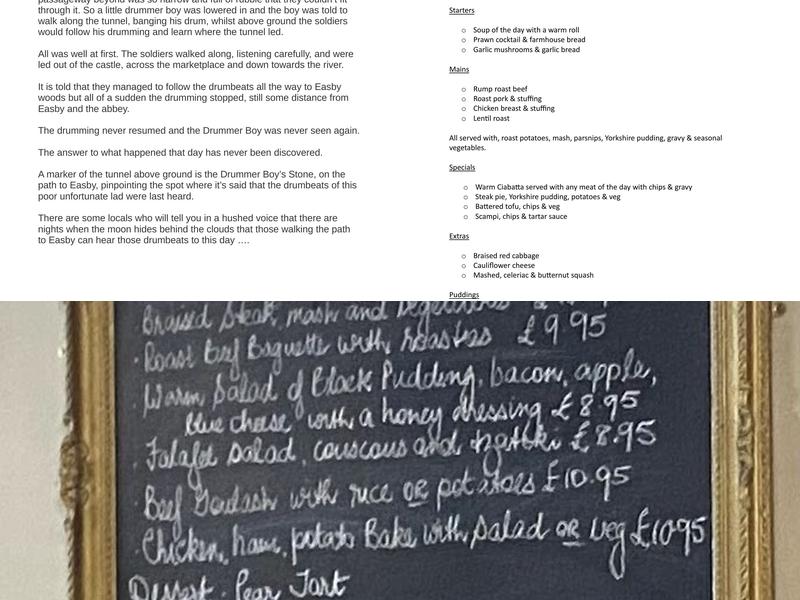 passageway beyond was so narrow and full of rubble that they couldn't fit
through it. So a little drummer boy was lowered in and the boy was told to
walk along the tunnel, banging his drum, whilst above ground the soldiers
would follow his drumming and learn where the tunnel led.
All was well at first. The soldiers walked along, listening carefully, and were
led out of the castle, across the marketplace and down towards the river.
It is told that they managed to follow the drumbeats all the way to Easby
woods but all of a sudden the drumming stopped, still some distance from
Easby and the abbey.
The drumming never resumed and the Drummer Boy was never seen again.
The answer to what happened that day has never been discovered.
A marker of the tunnel above ground is the Drummer Boy's Stone, on the
path to Easby, pinpointing the spot where it's said that the drumbeats of this
poor unfortunate lad were last heard.
There are some locals who will tell you in a hushed voice that there are
nights when the moon hides behind the clouds that those walking the path
to Easby can hear those drumbeats to this day ....
Starters
o Soup of the day with a warm roll
o Prawn cocktail & farmhouse bread
o Garlic mushrooms & garlic bread
Mains
o Rump roast beef
o Roast pork & stuffing
o Chicken breast & stuffing
o Lentil roast
All served with, roast potatoes, mash, parsnips, Yorkshire pudding, gravy & seasonal
vegetables.
Specials
o Warm Ciabatta served with any meat of the day with chips & gravy
o Steak pie, Yorkshire pudding, potatoes & veg
o Battered tofu, chips & veg
o Scampi, chips & tartar sauce
Extras
o Braised red cabbage
o Cauliflower cheese
o Mashed, celeriac & butternut squash
Puddings
Braised Steak, mash and vegetables
· Roast Beef Baguette with roasties £9.95
· Warm Salad of Black Pudding, bacon, apple,
blue cheese with a honey dressing £8.95
· Falafel salad, couscous and £8.95
· Beef Goulash with rice OR potatoes £10.95
· Chicken, ham, potato Bake with salad OR veg £10.95
Dessert · Pear Tart